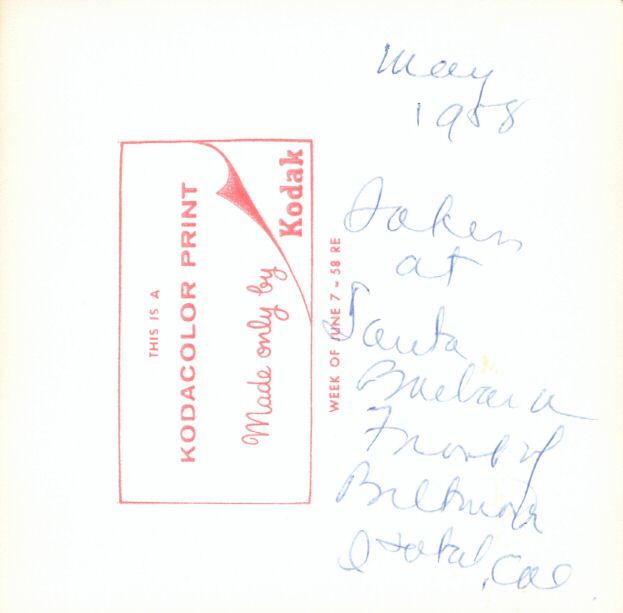 May
1958
Taken
at
Santa
Barbara
Front of
Biltmore
Hotel, Cal
THIS IS A
KODACOLOR PRINT
Made only by
Kodak
WEEK OF JUNE 7 - 58 RE